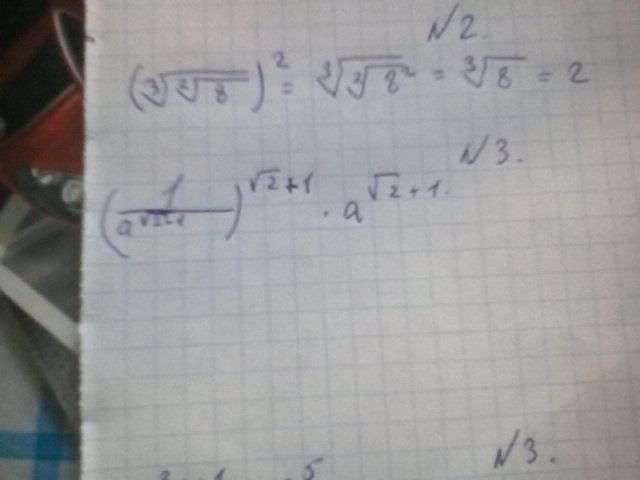 №2.
(∛√8)² = ∛∛8² = ∛8 = 2
№3.
(1/a^(√2-1))^(√2+1) · a^(√2+1).
№3.